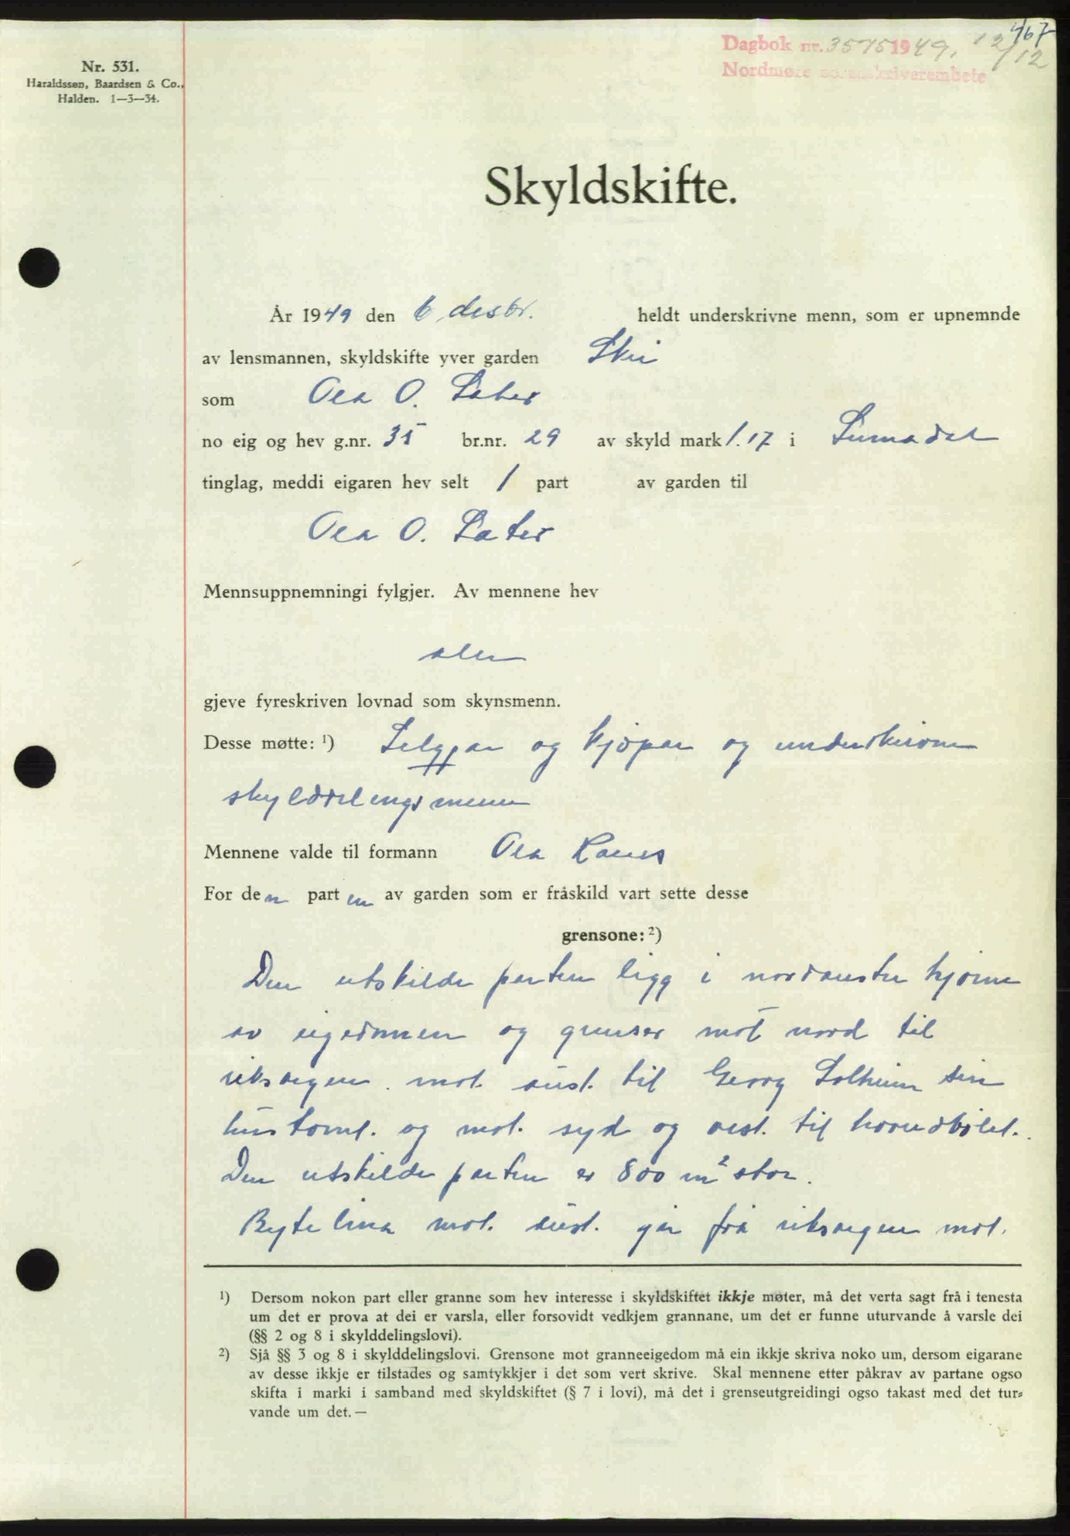 467
Dagbok nr. 3575 1949. 12/12
Nordmøre sorenskriverembete
Nr. 531.
Haraldssøn, Baardsen & Co.,
Halden. 1—3—34.
Skyldskifte.
År 1949 den 6. desbr. heldt underskrivne menn, som er upnemnde
av lensmannen, skyldskifte yver garden Skei
som Ola O. Sæter
no eig og hev g.nr. 35 br.nr. 29 av skyld mark 1.17 i Surnadal
tinglag, meddi eigaren hev selt 1 part av garden til
Ola O. Sæter
Mennsuppnemningi fylgjer. Av mennene hev
alle
gjeve fyreskriven lovnad som skynsmenn.
Desse møtte: ¹) Seljar og kjøpar og underskrivne
skylddelingsmenn
Mennene valde til formann Ola Ranes
For den parten av garden som er fråskild vart sette desse
grensone: ²)
Den utskilde parten ligg i nordaustre hjørne
av eigedomen og grenser mot nord til
riksvegen. mot aust. til Georg Solheim sin
hustomt. og mot. syd og vest. til hovudbølet.
Den utskilde parten er 800 m² stor.
Bytelina mot. aust. går frå riksvegen mot.
¹) Dersom nokon part eller granne som hev interesse i skyldskiftet ikkje møter, må det verta sagt frå i tenesta
um det er prova at dei er varsla, eller forsovidt vedkjem grannane, um det er funne uturvande å varsle dei
(§§ 2 og 8 i skylddelingslovi).
²) Sjå §§ 3 og 8 i skylddelingslovi. Grensone mot granneeigedom må ein ikkje skriva noko um, dersom eigarane
av desse ikkje er tilstades og samtykkjer i det som vert skrive. Skal mennene etter påkrav av partane ogso
skifta i marki i samband med skyldskiftet (§ 7 i lovi), må det i grenseutgreidingi ogso takast med det tur-
vande um det. —